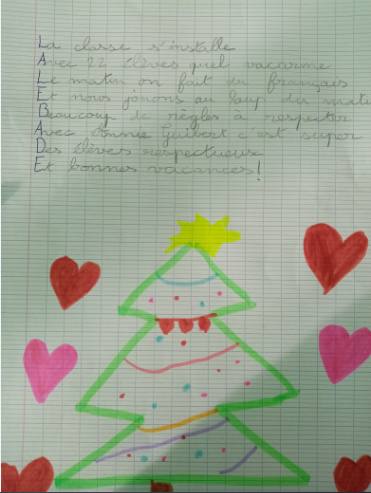 La classe s'installe
Avec 22 élèves quel vacarme
Le matin on fait du français
Et nous jouons au loup du
Beaucoup de règles à respecter
Avec Guibert c'est super
Des élèves respectueux
Et bonnes vacances!